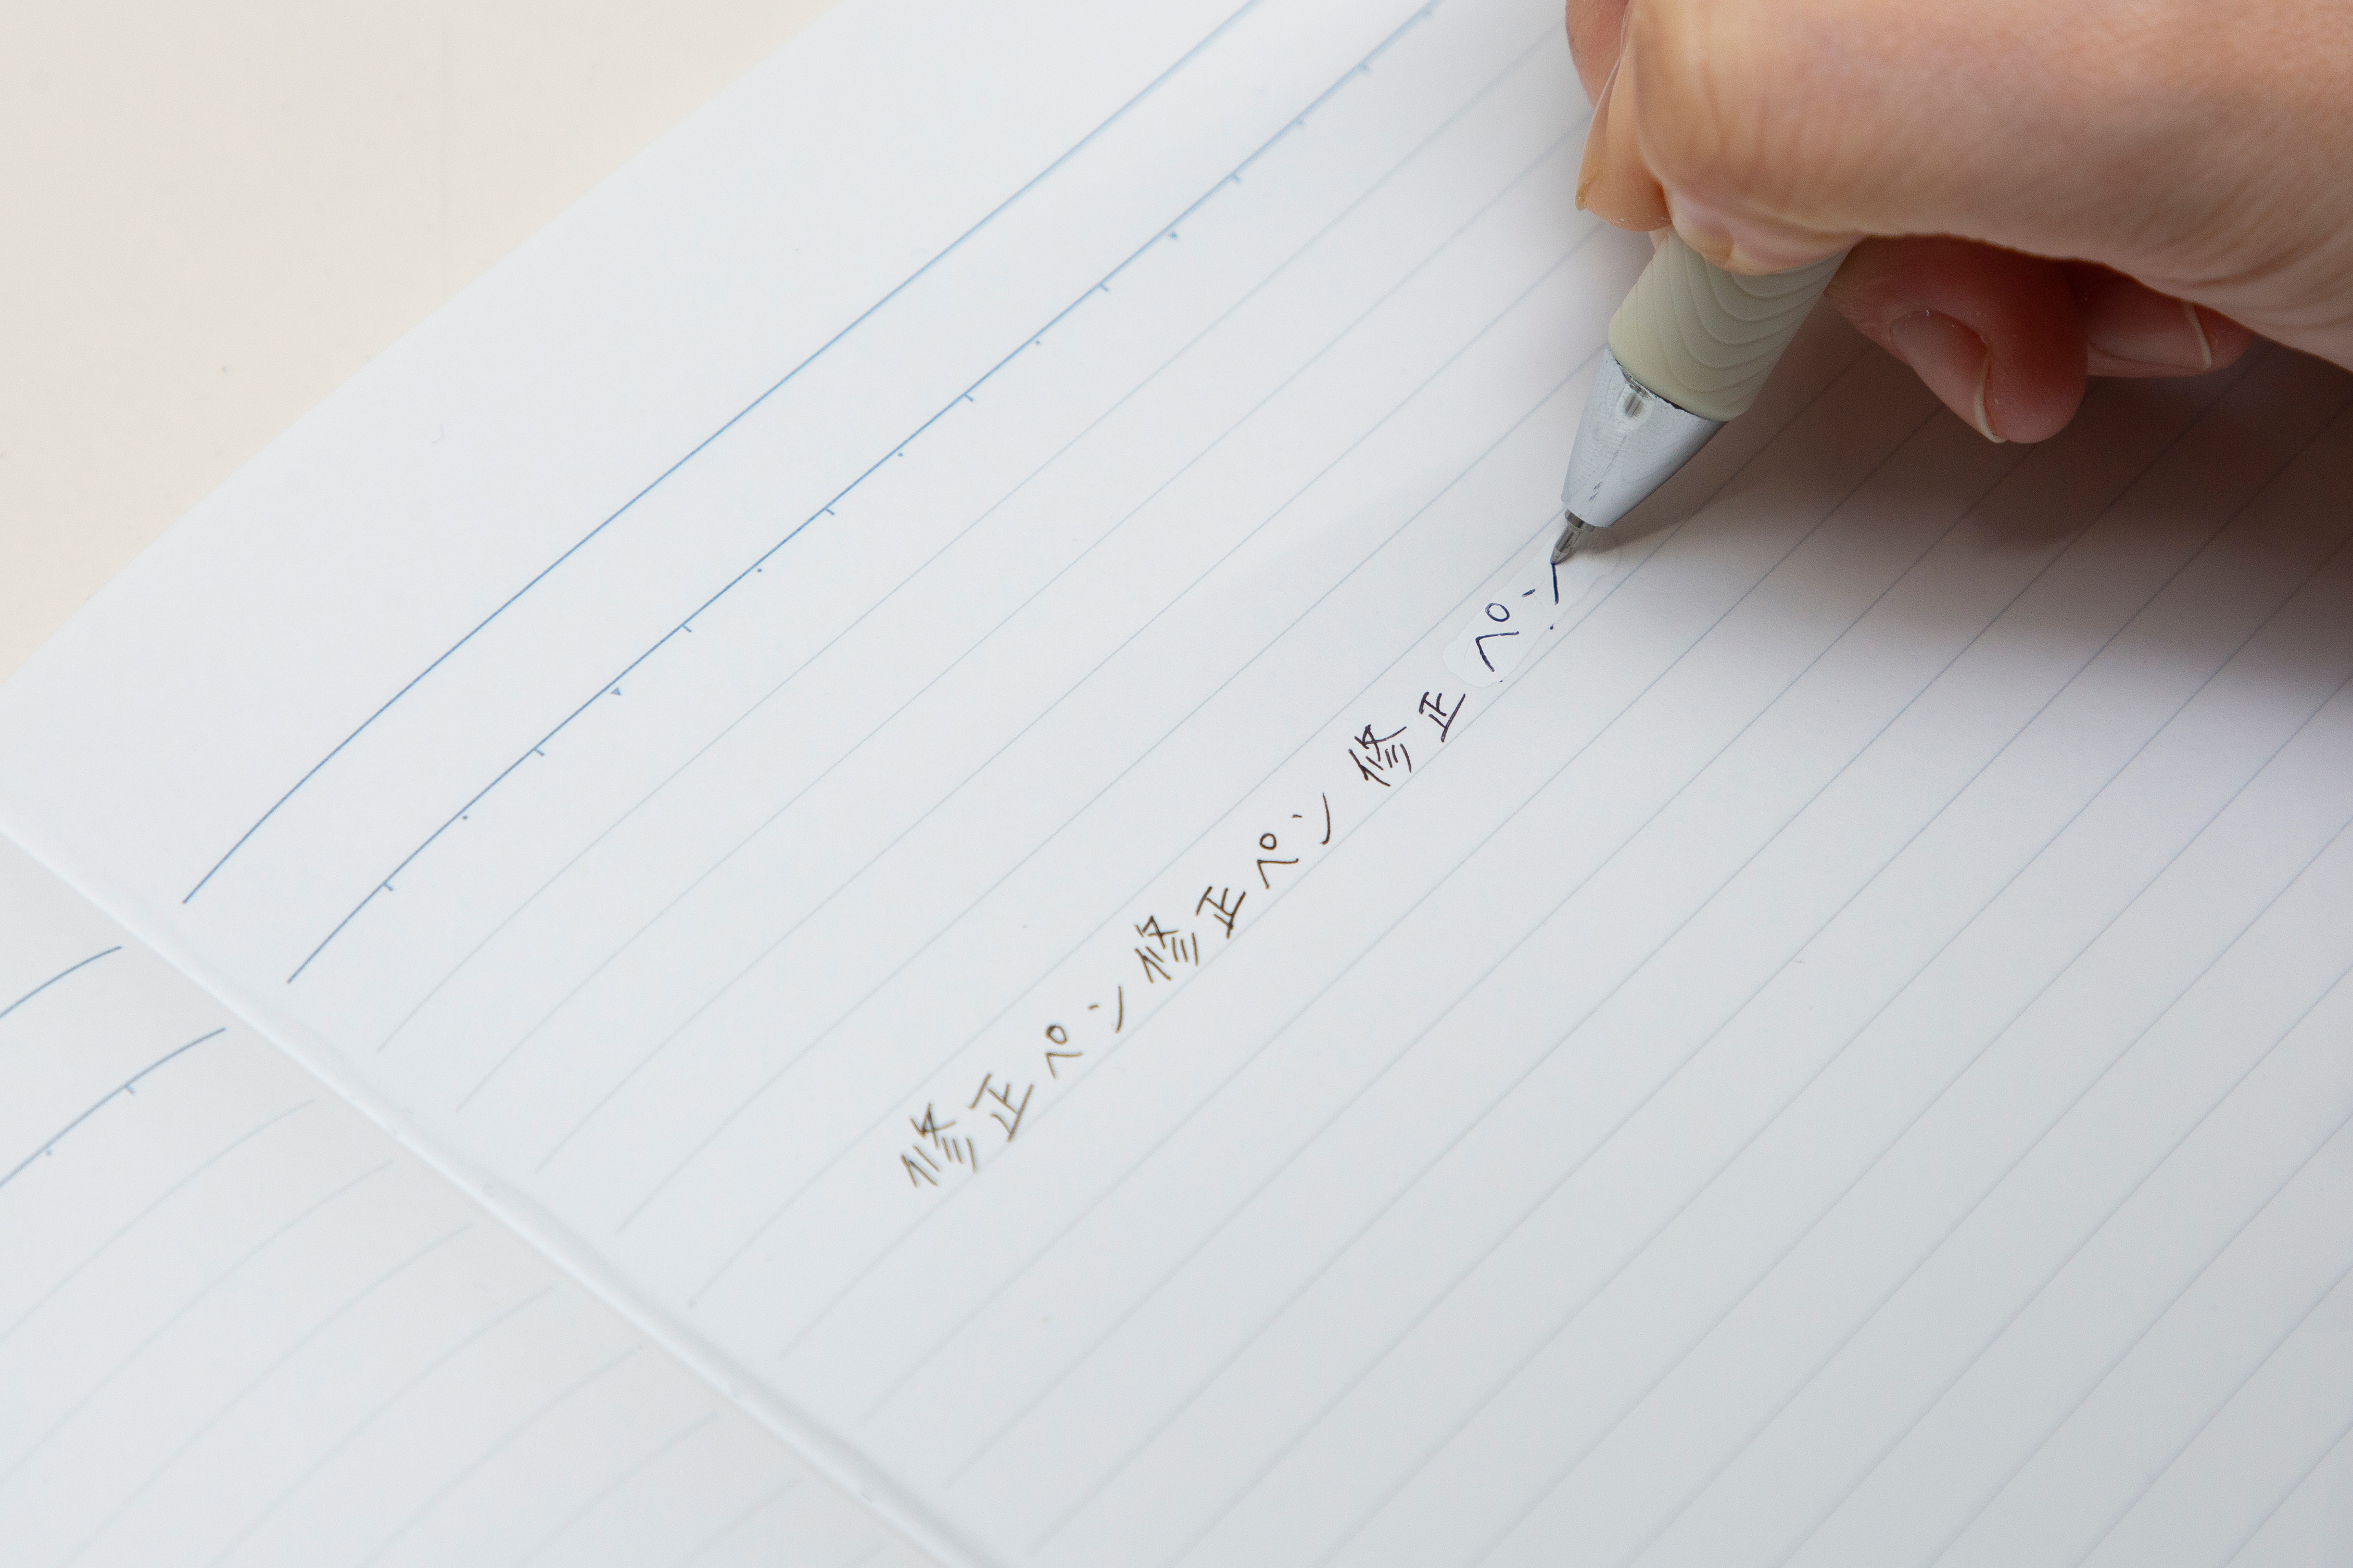 修正ペン修正ペン修正ペン